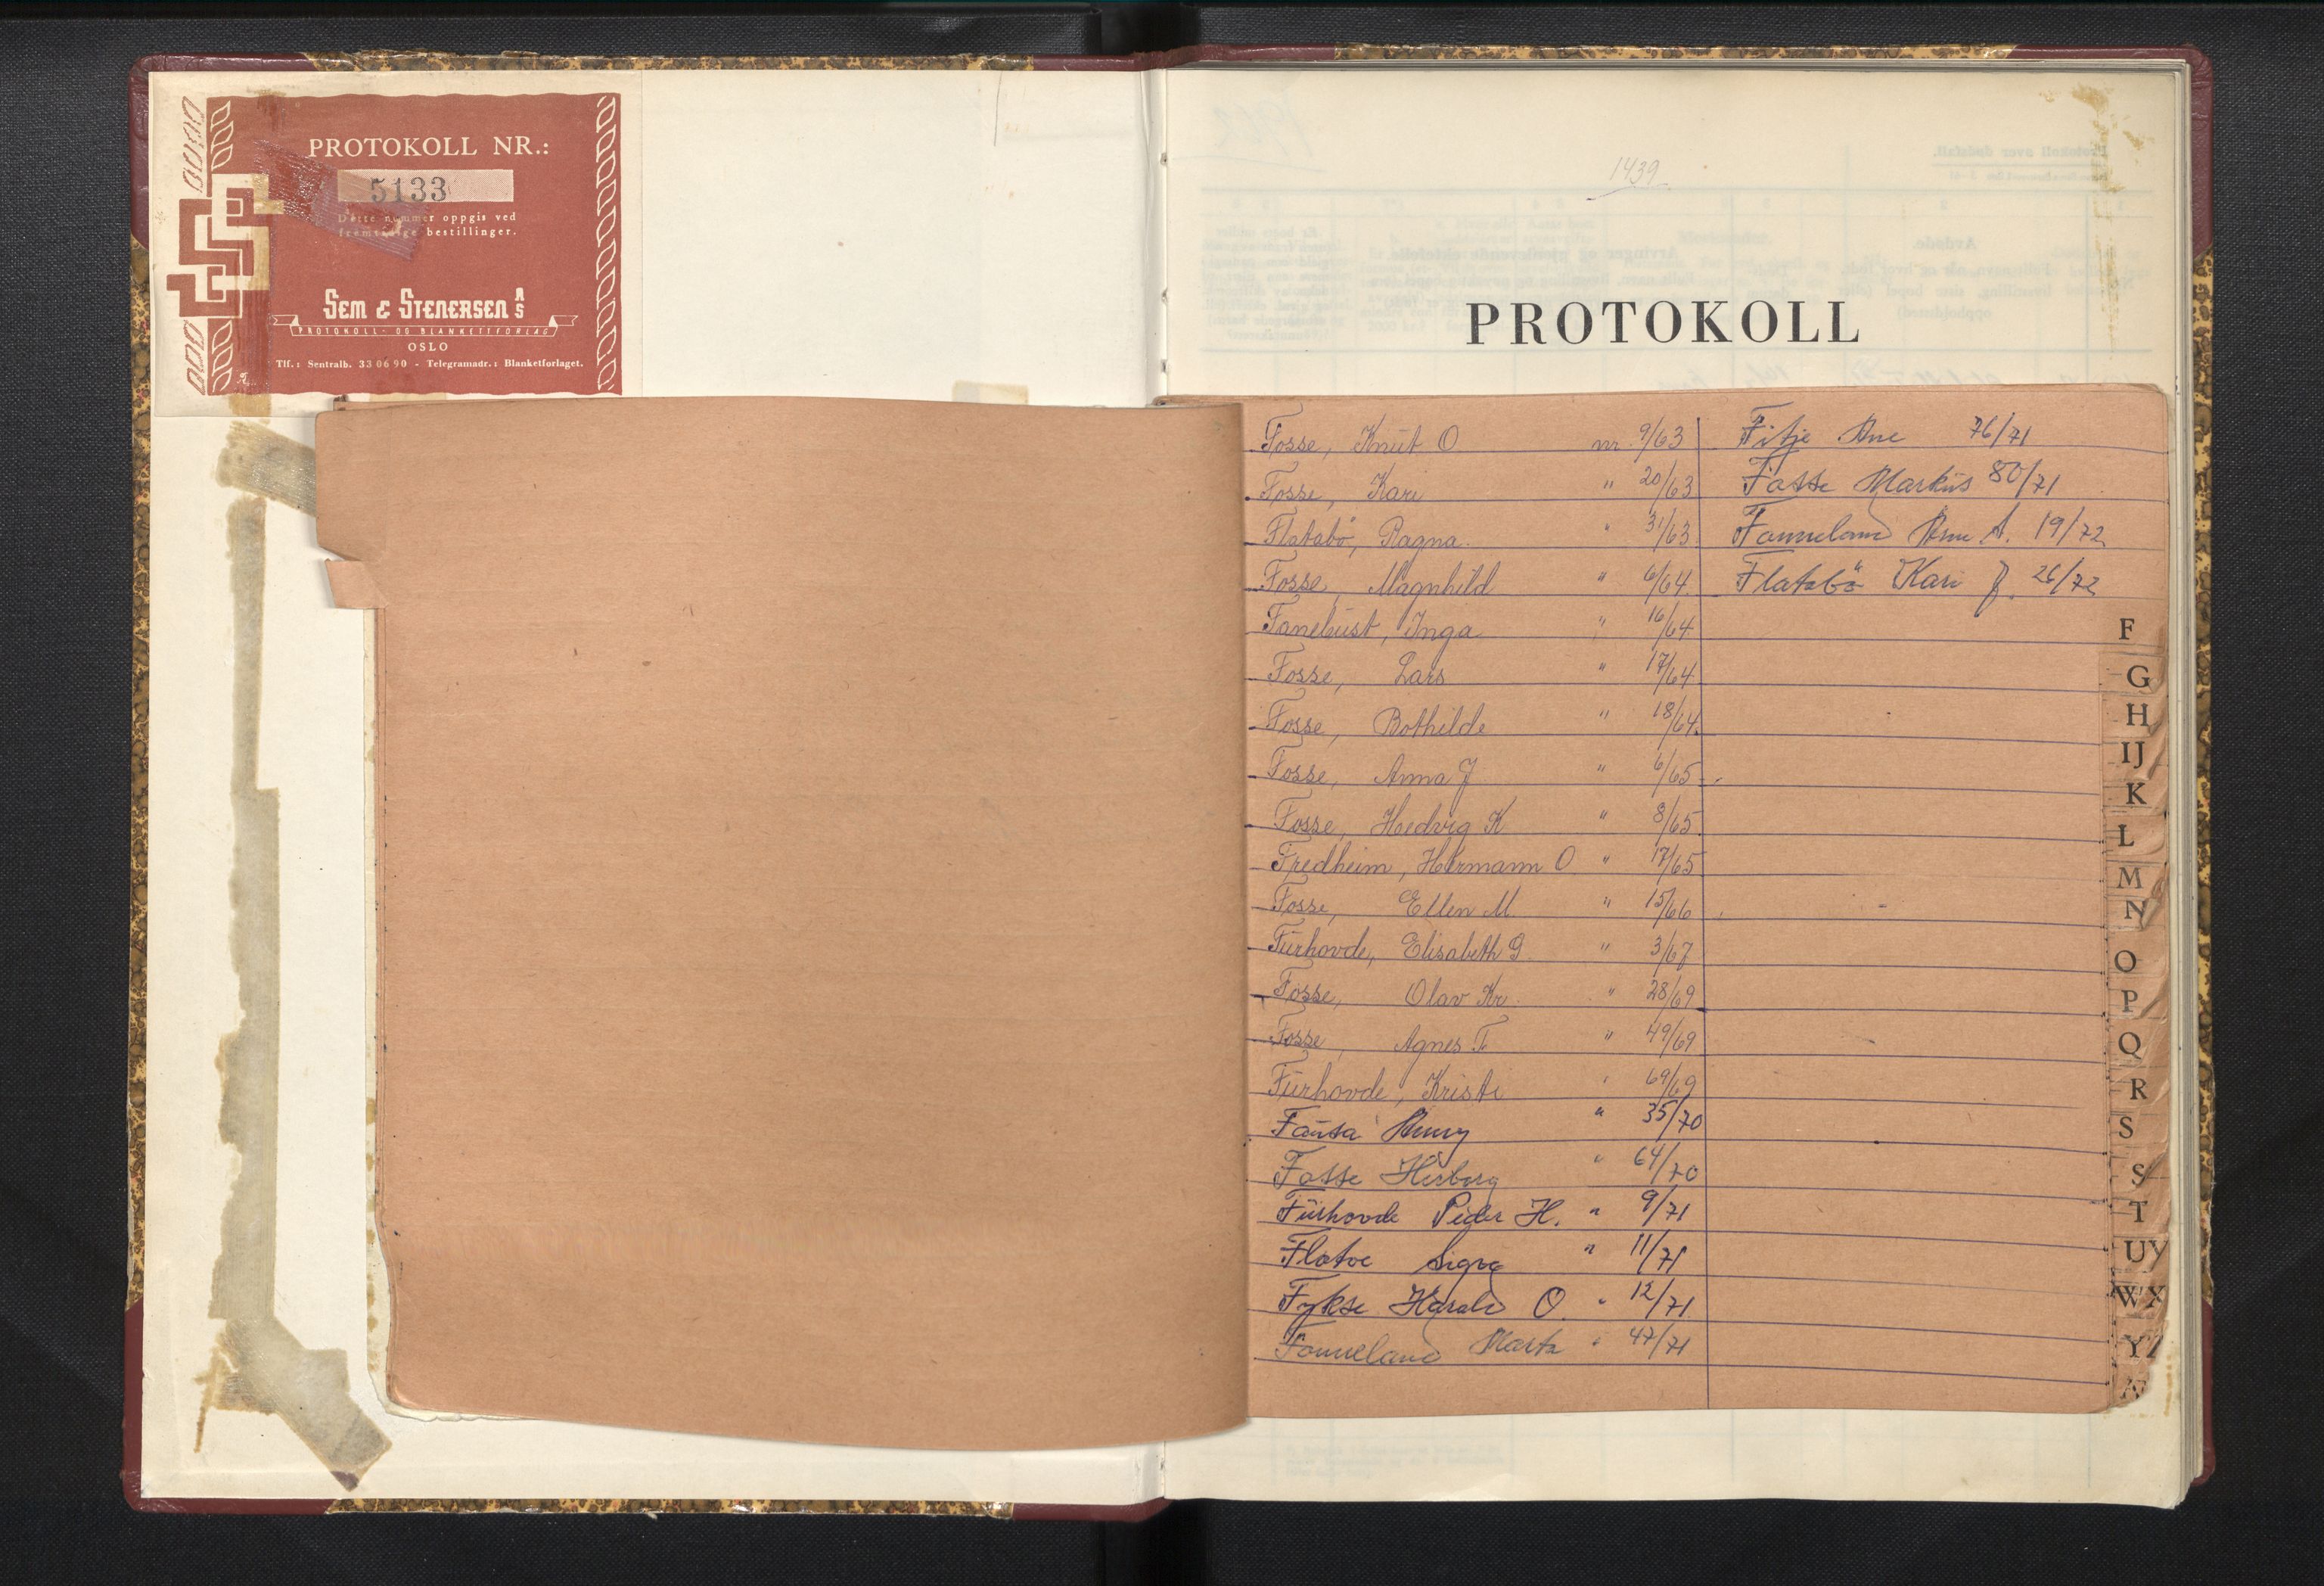 PROTOKOLL NR.:
5133
Dette nummer oppgis ved
fremtidige bestillinger.
SEM & STENERSEN A/S
PROTOKOLL- OG BLANKETTFORLAG
OSLO
Tlf.: Sentralb. 33 06 90 - Telegramadr.: Blanketforlaget.
1439
PROTOKOLL
Fosse, Knut O. nr. 9/63
Fosse, Kari " 20/63
Flatabö, Ragna " 31/63
Fosse, Magnhild " 6/64
Fonebust, Inga " 16/64
Fosse, Lars " 17/64
Fosse, Bothilde " 18/64
Fosse, Anna J " 6/65
Fosse, Hedvig K " 8/65
Fredheim, Hermann O. " 17/65
Fosse, Ellen M. " 15/66
Furhovde, Elisabeth G. " 3/67
Fosse, Olav Kr. " 28/69
Fosse, Agnes T. " 49/69
Furhovde, Kristi " 69/69
Fausa " 35/70
Fosse Herborg " 64/70
Furhovde Peder H. " 9/71
Flatve Sigve " 11/71
Fykse Harald O. " 12/71
Fonneland Marta " 47/71
Fitje Ane 76/71
Fosse Markus 80/71
Fonneland Ane A. 19/72
Flatabö Kari J. 26/72
F
G
H
IJ
K
L
M
N
O
P
Q
R
S
S
T
UY
WX
Y